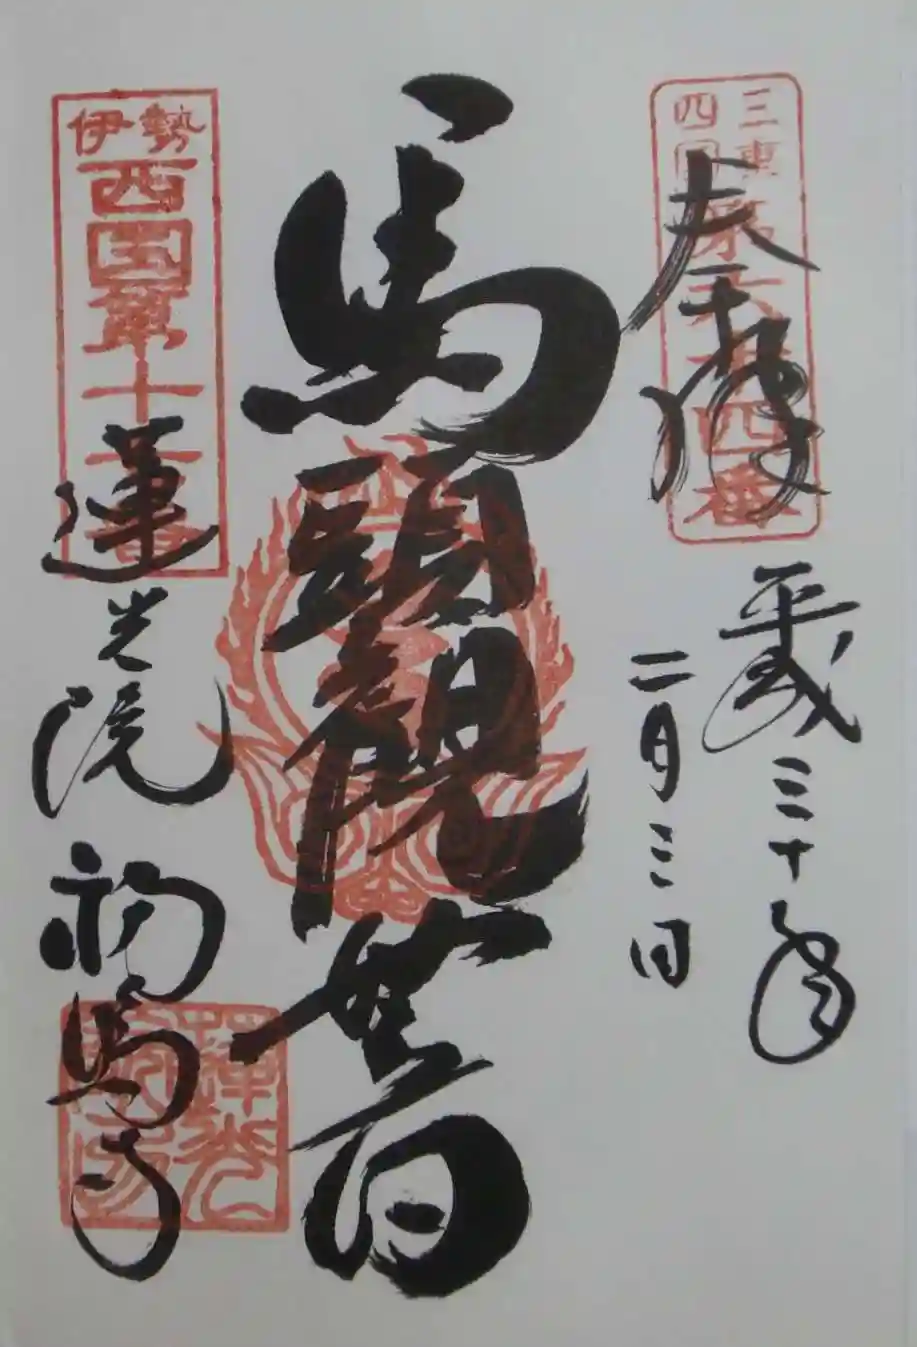 奉拝
平成三十年
二月三日
三重
四国
第六十四番
馬頭観世音
伊勢
西国第十三番
蓮光院
初馬寺